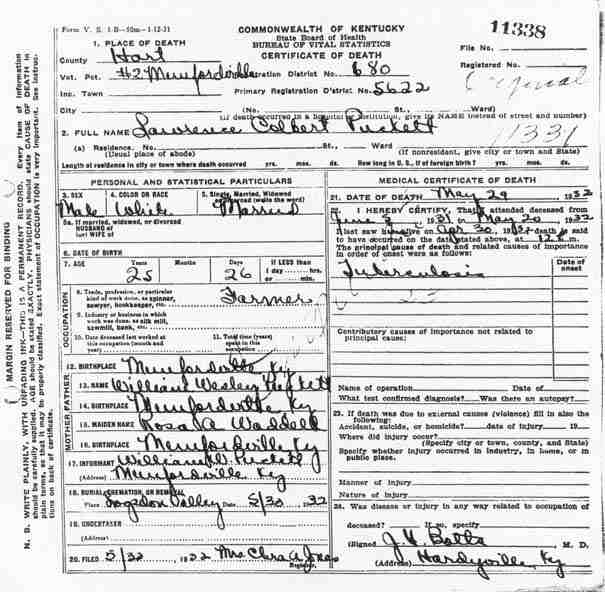 Form V. S. 1-B—50m—1-12-31
COMMONWEALTH OF KENTUCKY
State Board of Health
BUREAU OF VITAL STATISTICS
CERTIFICATE OF DEATH
11338
File No.
Registered No.
Original
11331
1. PLACE OF DEATH
County Hart
Vot. Pct. #2 Munfordville Registration District No. 680
Inc. Town Primary Registration District No. 5622
City (No. St., Ward)
(If death occurred in a hospital or institution, give its NAME instead of street and number)
2. FULL NAME Lawrence Colbert Puckett
(a) Residence. No. St., Ward
(Usual place of abode) (If nonresident, give city or town and State)
Length of residence in city or town where death occurred yrs. mos. ds. How long in U. S., if of foreign birth? yrs. mos. ds.
PERSONAL AND STATISTICAL PARTICULARS
3. SEX 4. COLOR OR RACE 5. Single, Married, Widowed
or Divorced (write the word)
Male White Married
5a. If married, widowed, or divorced
HUSBAND of
(or) WIFE of
6. DATE OF BIRTH
7. AGE Years Months Days If LESS than
1 day hrs.
or min.
25 26
OCCUPATION
8. Trade, profession, or particular
kind of work done, as spinner,
sawyer, bookkeeper, etc. Farmer
9. Industry or business in which
work was done, as silk mill,
sawmill, bank, etc.
10. Date deceased last worked at
this occupation (month and
year)
11. Total time (years)
spent in this
occupation
12. BIRTHPLACE Munfordville Ky
FATHER
13. NAME William Wesley Puckett
14. BIRTHPLACE Munfordville Ky
MOTHER
15. MAIDEN NAME Rosa A Waddell
16. BIRTHPLACE Munfordville Ky
17. INFORMANT William W. Puckett
(Address) Munfordville Ky
18. BURIAL, CREMATION, OR REMOVAL
Place Logsdon Valley Date 5/30 1932
19. UNDERTAKER
(Address)
20. FILED 5/32 1932 Mrs Clera A Jones
Registrar.
MEDICAL CERTIFICATE OF DEATH
21. DATE OF DEATH May 29 1932
22. I HEREBY CERTIFY, That I attended deceased from
June 3 1931 to May 20 1932
I last saw alive on Apr 30 1932 death is said
to have occurred on the date stated above, at 12 m.
The principal cause of death and related causes of importance
in order of onset were as follows:
Date of
onset
Tuberculosis
Contributory causes of importance not related to
principal cause:
Name of operation Date of
What test confirmed diagnosis? Was there an autopsy?
23. If death was due to external causes (violence) fill in also the
following:
Accident, suicide, or homicide? date of injury 19
Where did injury occur?
(Specify city or town, county, and State)
Specify whether injury occurred in industry, in home, or in
public place.
Manner of injury
Nature of injury
24. Was disease or injury in any way related to occupation of
deceased? If so, specify
(Signed J. H. Botts M. D.
(Address) Hardyville, Ky
( ) MARGIN RESERVED FOR BINDING
N. B. WRITE PLAINLY, WITH UNFADING INK—THIS IS A PERMANENT RECORD. Every item of information
should be carefully supplied. AGE should be stated EXACTLY. PHYSICIANS should state CAUSE OF DEATH in
plain terms, so that it may be properly classified. Exact statement of OCCUPATION is very important. See instruc-
tions on back of certificate.